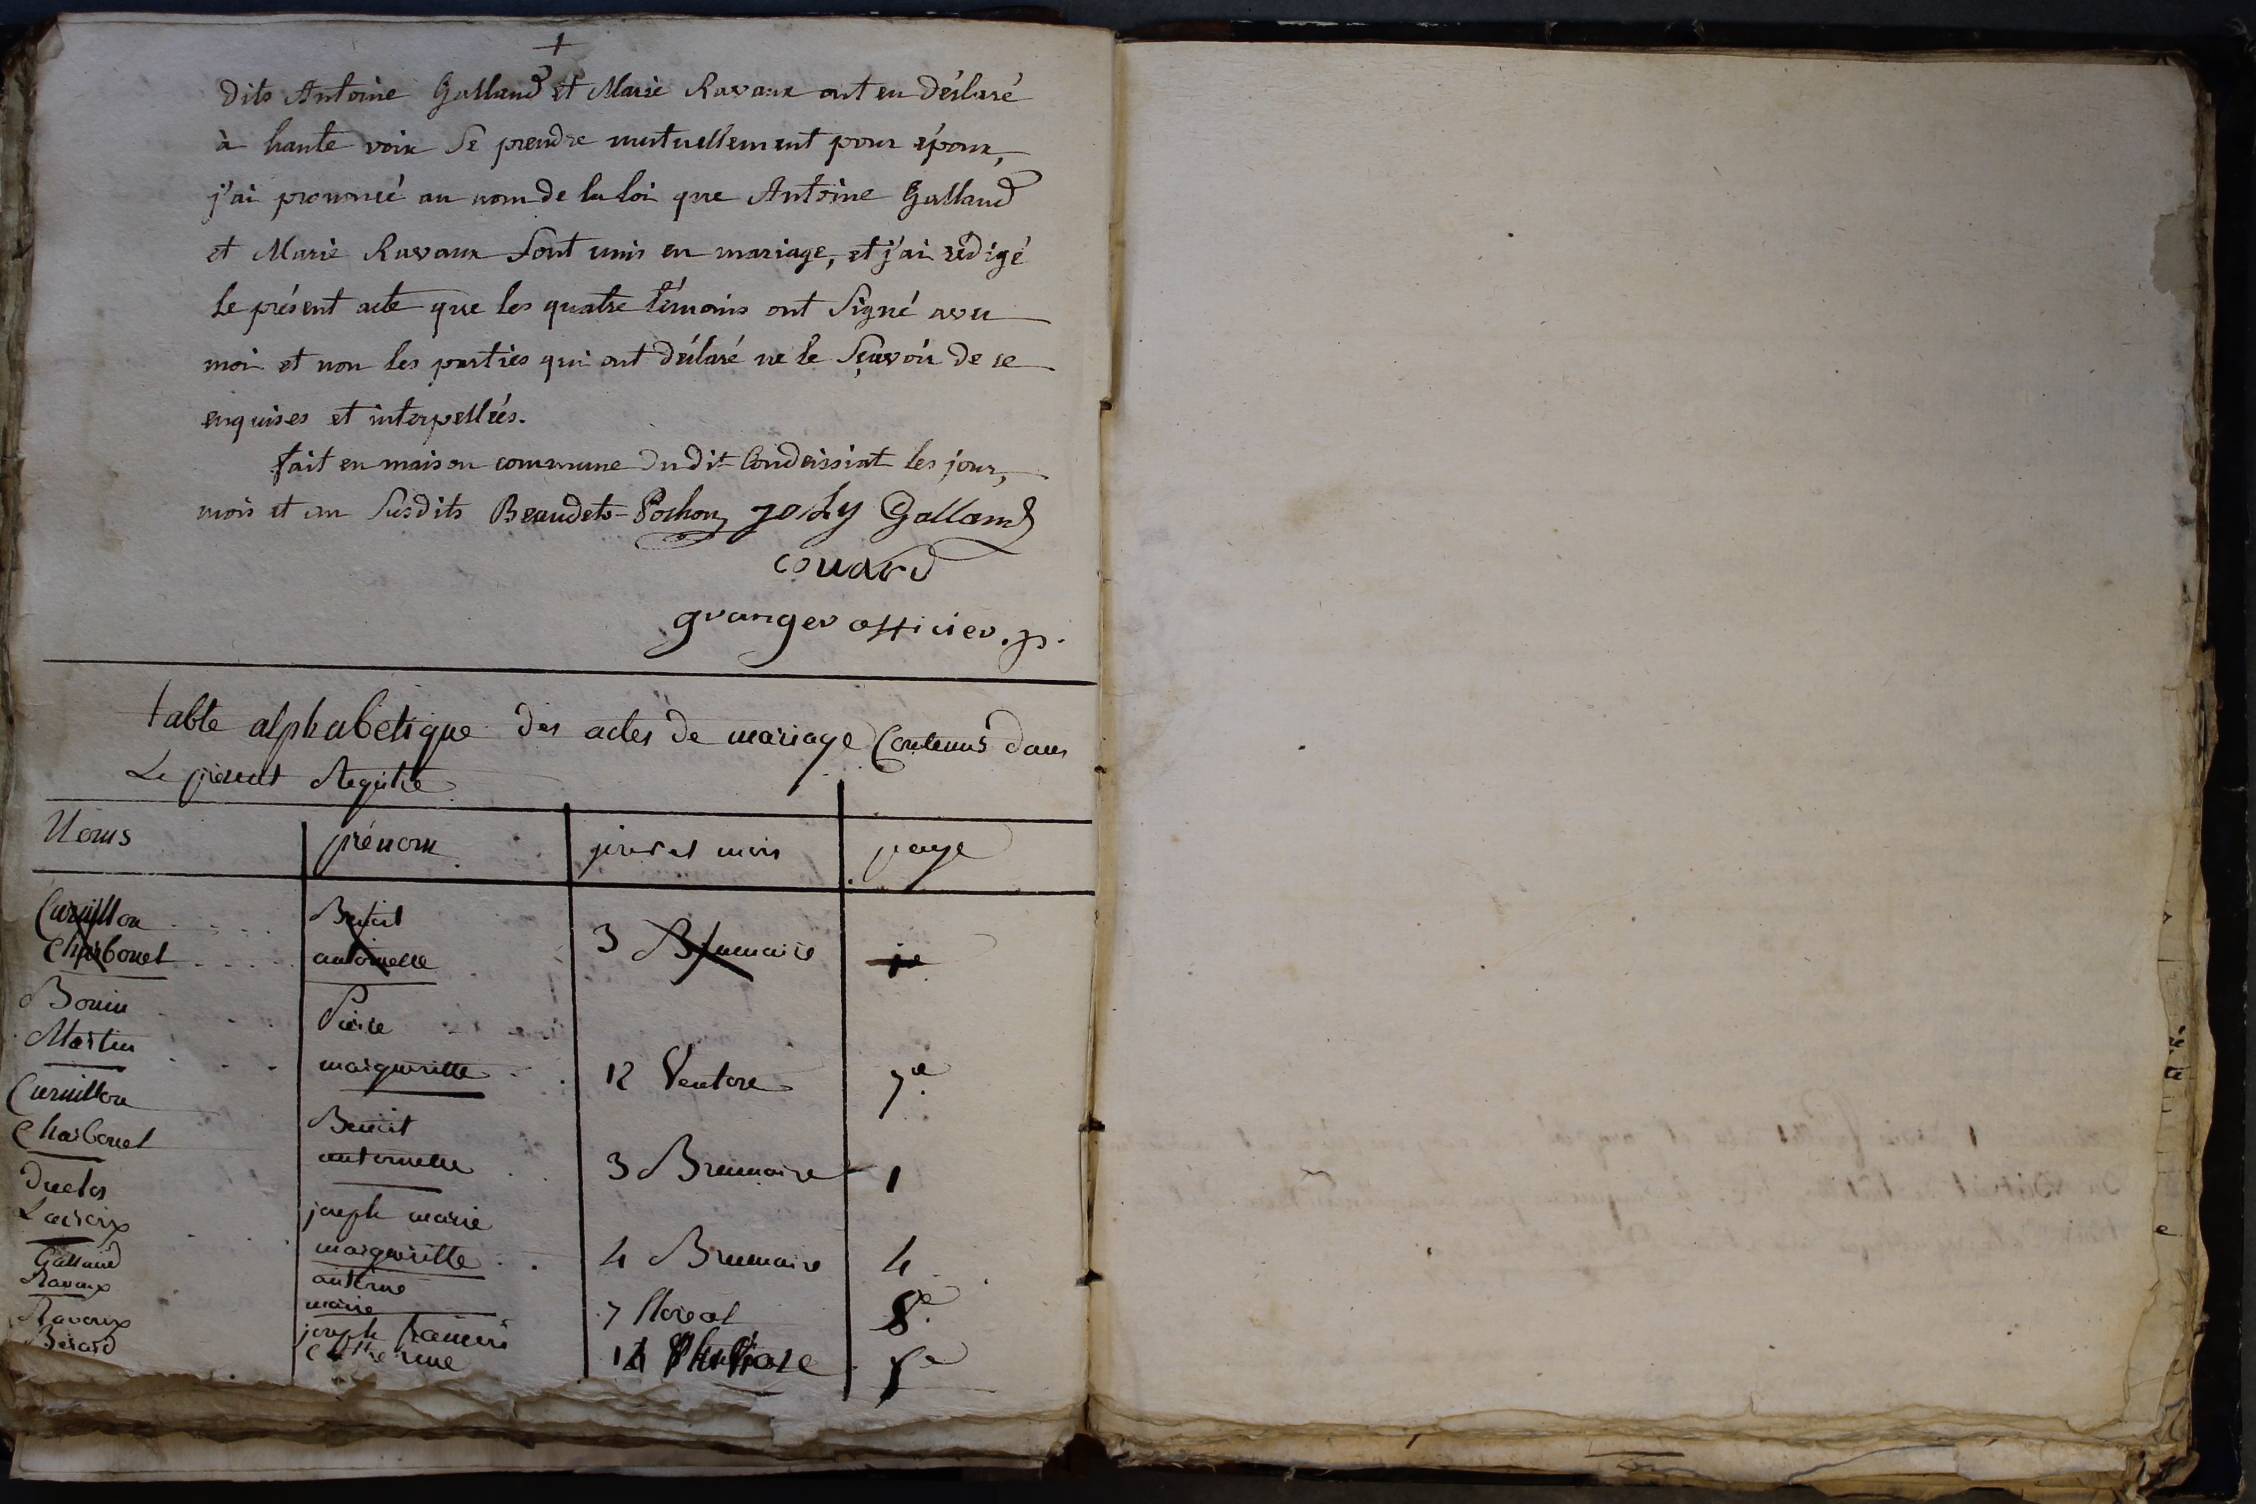 dits Antoine Galland et Marie Ravaux ont eu déclaré
à haute voix se prendre mutuellement pour époux,
j'ai prononcé au nom de la loi que Antoine Galland
et Marie Ravaux sont unis en mariage, et j'ai rédigé
le présent acte que les quatre témoins ont signé avec
moi et non les parties qui ont déclaré ne le sçavoir de ce
enquises et interpellées.
fait en maison commune dudit Condeissiat les jour,
mois et an susdits Beaudets Pochon joly Galland
couard
granger officier .p.
table alphabetique des actes de mariage Contenus dans
Le présent Registre
Noms prénom jours et mois page
Curnillon Benoit
Charbonet antoinette 3 Brumaire 1e
Bouin Pierre
Martin margueritte 12 Ventose 7e
Curnillon Benoit
Charbonet antoinette 3 Brumaire 1
Duclos joseph marie
Lacroix margueritte 4 Brumaire 4
Galland antoine
Ravaux marie 7 floreal 8e
Ravoux joseph francois
Bérard Catherine